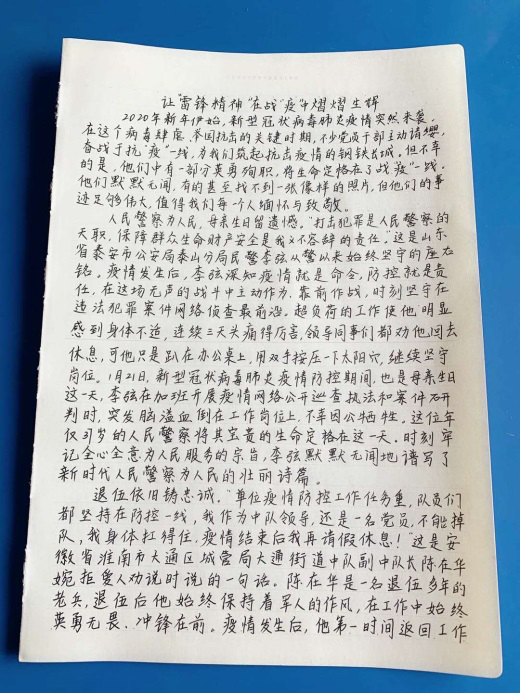 让“雷锋精神”在战“疫”中熠熠生辉
2020年新年伊始，新型冠状病毒肺炎疫情突然来袭。
在这个病毒肆虐、举国抗击的关键时期，不少党员干部主动请缨，
奋战于抗“疫”一线，为我们筑起抗击疫情的钢铁长城。但不幸
的是，他们中有一部分英勇殉职，将生命定格在了战“疫”一线。
他们默默无闻，有的甚至找不到一张像样的照片，但他们的事
迹足够伟大，值得我们每一个人缅怀与致敬。
人民警察为人民，母亲生日留遗憾。“打击犯罪是人民警察的
天职，保障群众生命财产安全是我义不容辞的责任。”这是山东
省泰安市公安局泰山分局民警李弦从警以来始终坚守的座右
铭。疫情发生后，李弦深知疫情就是命令，防控就是责
任，在这场无声的战斗中主动作为、靠前作战，时刻坚守在
违法犯罪案件网络侦查最前沿。超负荷的工作使他明显
感到身体不适，连续三天头痛得厉害，领导同事们都劝他回去
休息，可他只是趴在办公桌上，用双手按压一下太阳穴，继续坚守
岗位。1月21日，新型冠状病毒肺炎疫情防控期间，也是母亲生日
这一天，李弦在加班开展疫情网络公开巡查执法和案件研
判时，突发脑溢血倒在工作岗位上，不幸因公牺牲。这位年
仅37岁的人民警察将其宝贵的生命定格在这一天。时刻牢
记全心全意为人民服务的宗旨，李弦默默无闻地谱写了
新时代人民警察为人民的壮丽诗篇。
退伍依旧铸忠诚。“单位疫情防控工作任务重，队员们
都坚持在防控一线，我作为中队领导，还是一名党员，不能掉
队，我身体扛得住，疫情结束后我再请假休息！”这是安
徽省淮南市大通区城管局大通街道中队副中队长陈在华
婉拒爱人劝说时说的一句话。陈在华是一名退伍多年的
老兵，退伍后他始终保持着军人的作风，在工作中始终
英勇无畏、冲锋在前。疫情发生后，他第一时间返回工作